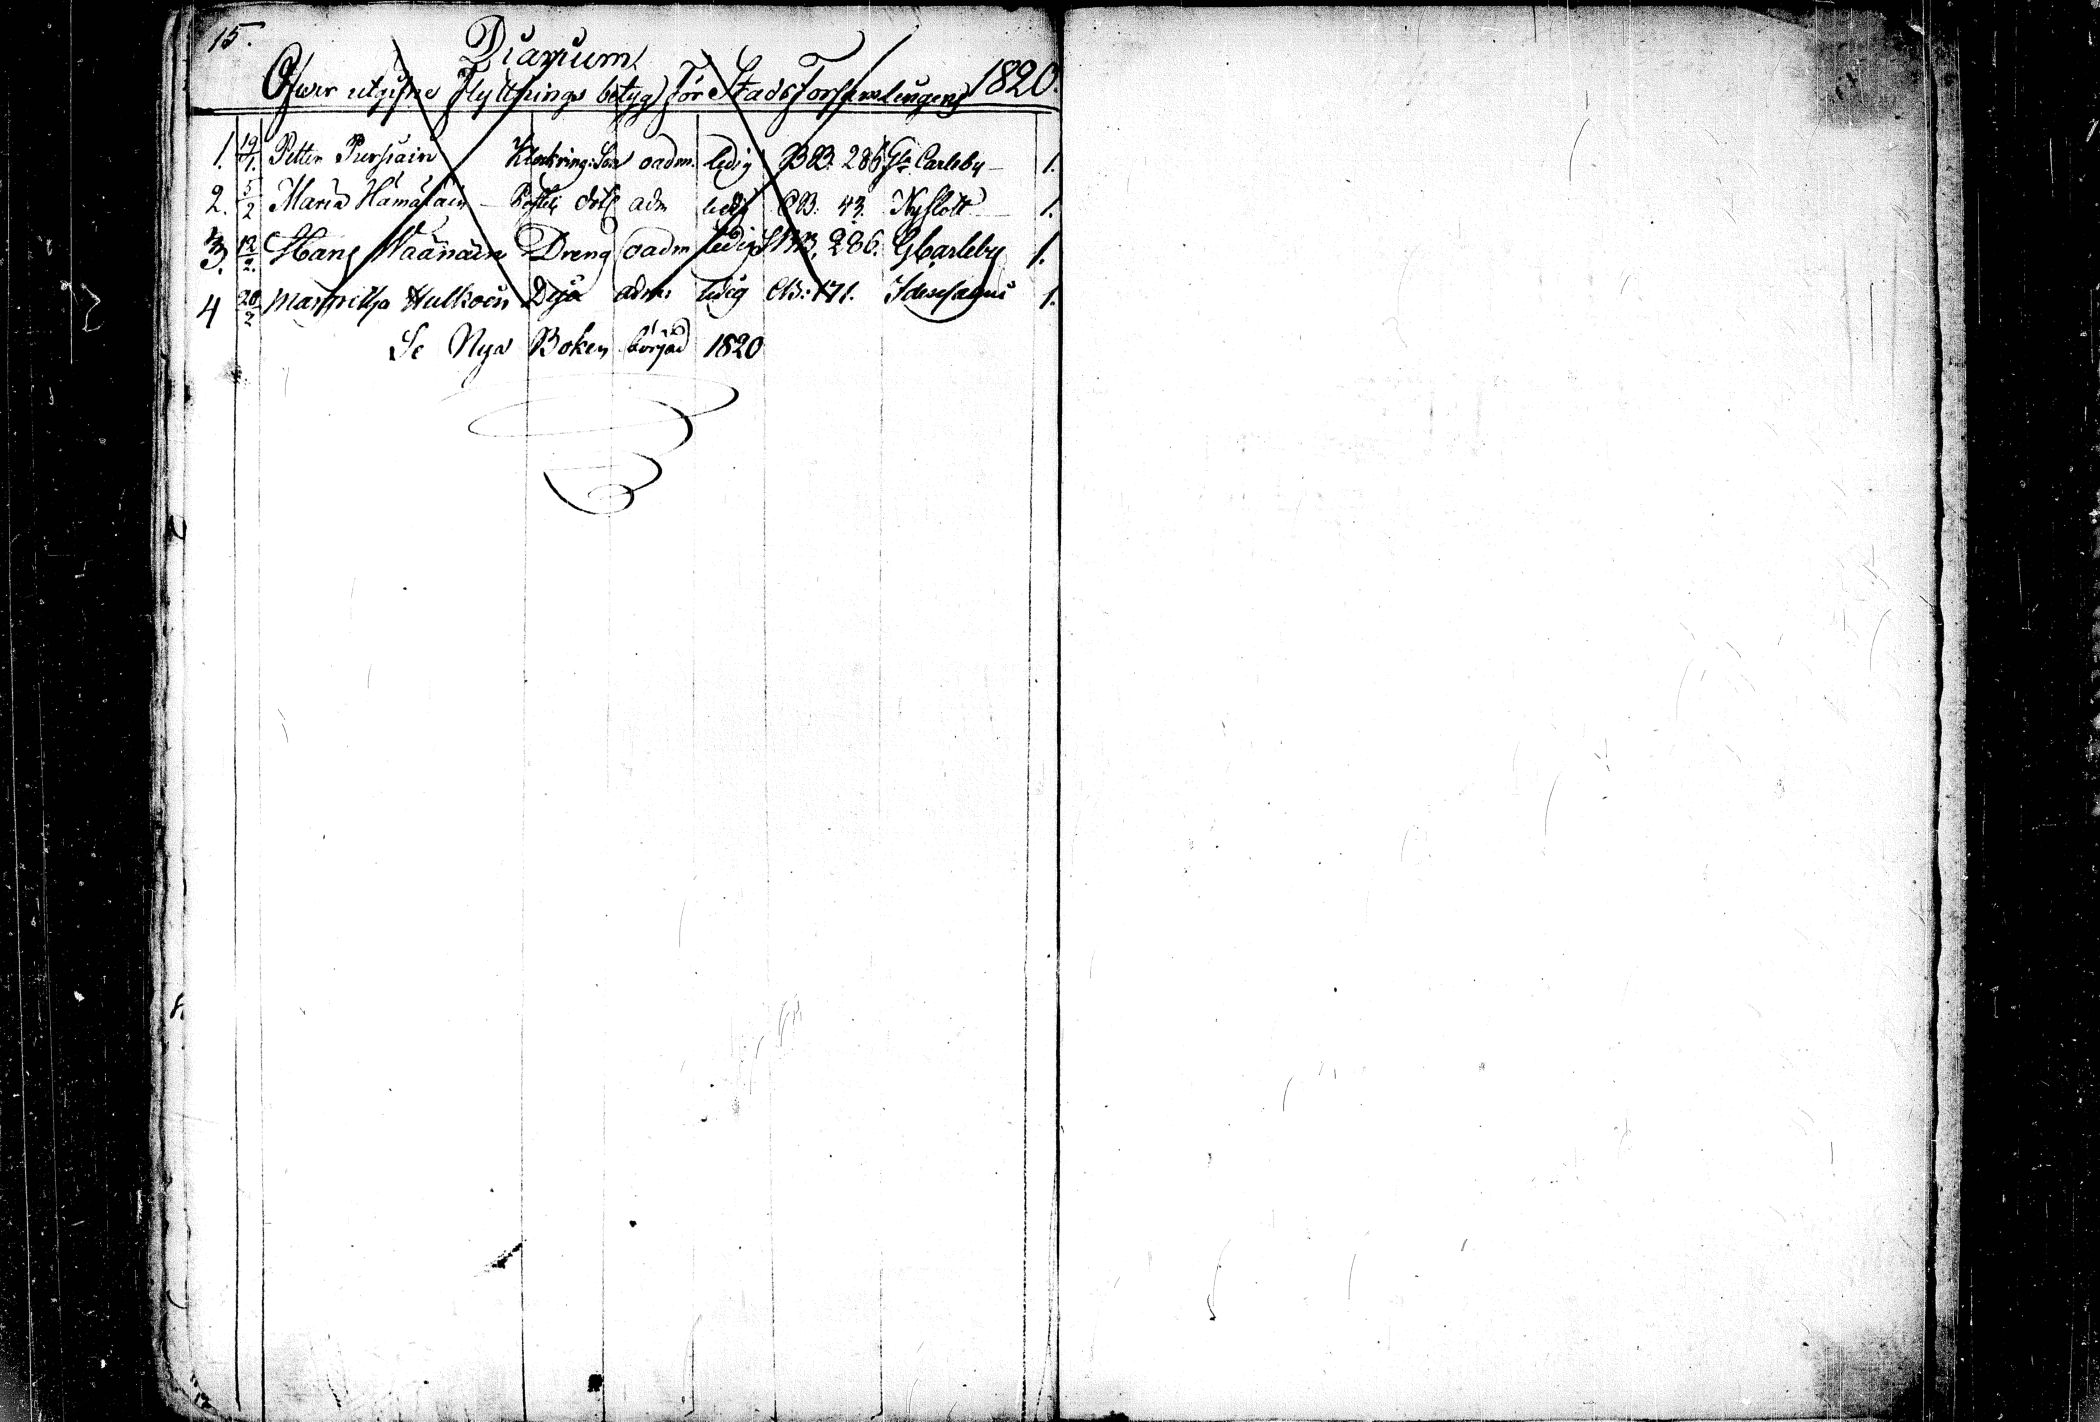 15.
Diarium
Öfwer utgifne Flyttnings betyg för Stads Församlingens 1820.
1. 19/1. Petter Kløckring: Son oadm. ledig BB. 286 Gla Carleby 1.
2. 5/2 Maria Hämäläin adm ledig CB: 43. Nyslott 1.
3. 12/2. Hans Wäänäin Dreng oadm ledig BB. 286. GCarleby 1.
4 20/2 Margretha Hulkoin Deja adm: ledig CB: 171. Idensalmi 1.
Se Nya Boken börjad 1820